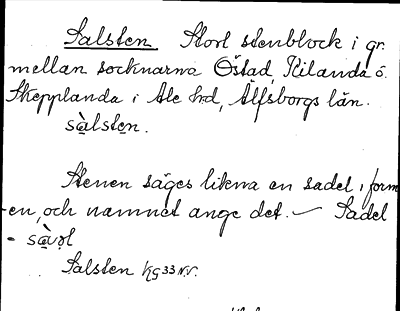 Salsten Stort stenblock i gr.
mellan socknarna Östad, Kilanda o.
Skepplanda i Ale hd, Älfsborgs län.
sàlsten.
Stenen säges likna en sadel i form
en, och namnet ange det. — Sadel
- sàvḷ
Salsten kg 33 N.V.